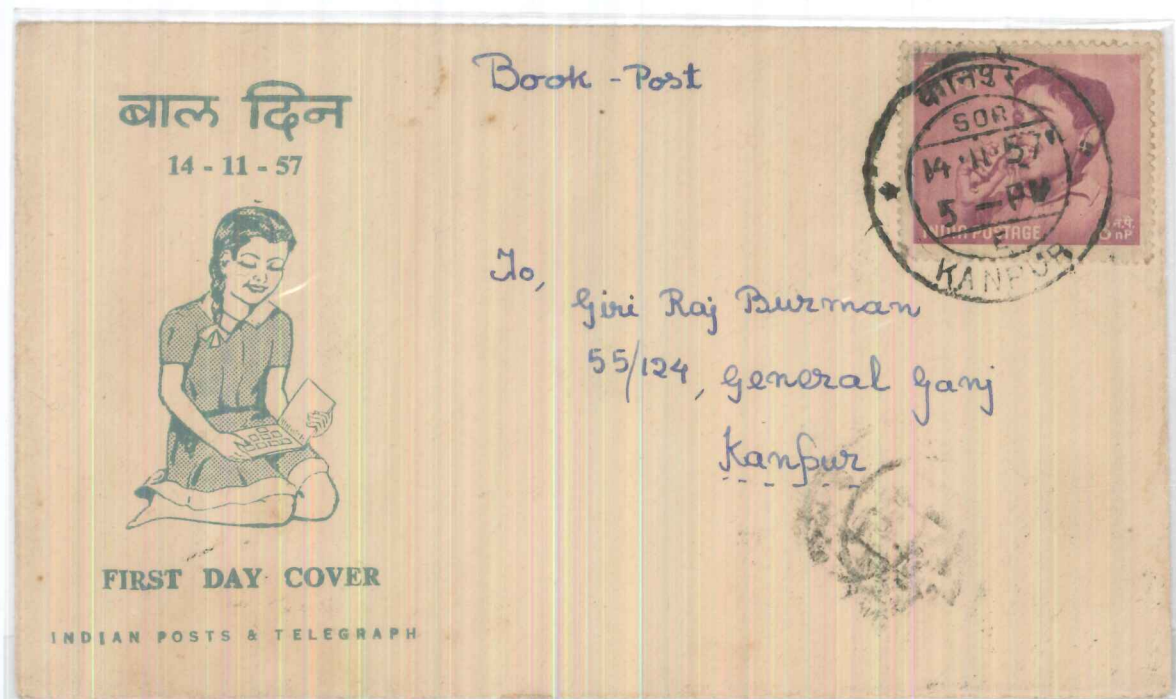 बाल दिन
14 - 11 - 57
FIRST DAY COVER
INDIAN POSTS & TELEGRAPH
Book - Post
To,
Giri Raj Burman
55/124, General Ganj
Kanpur
कानपुर
SOR
14 · 11 · 57
5 - PM
KANPUR
INDIA POSTAGE
8 न.पै.
nP